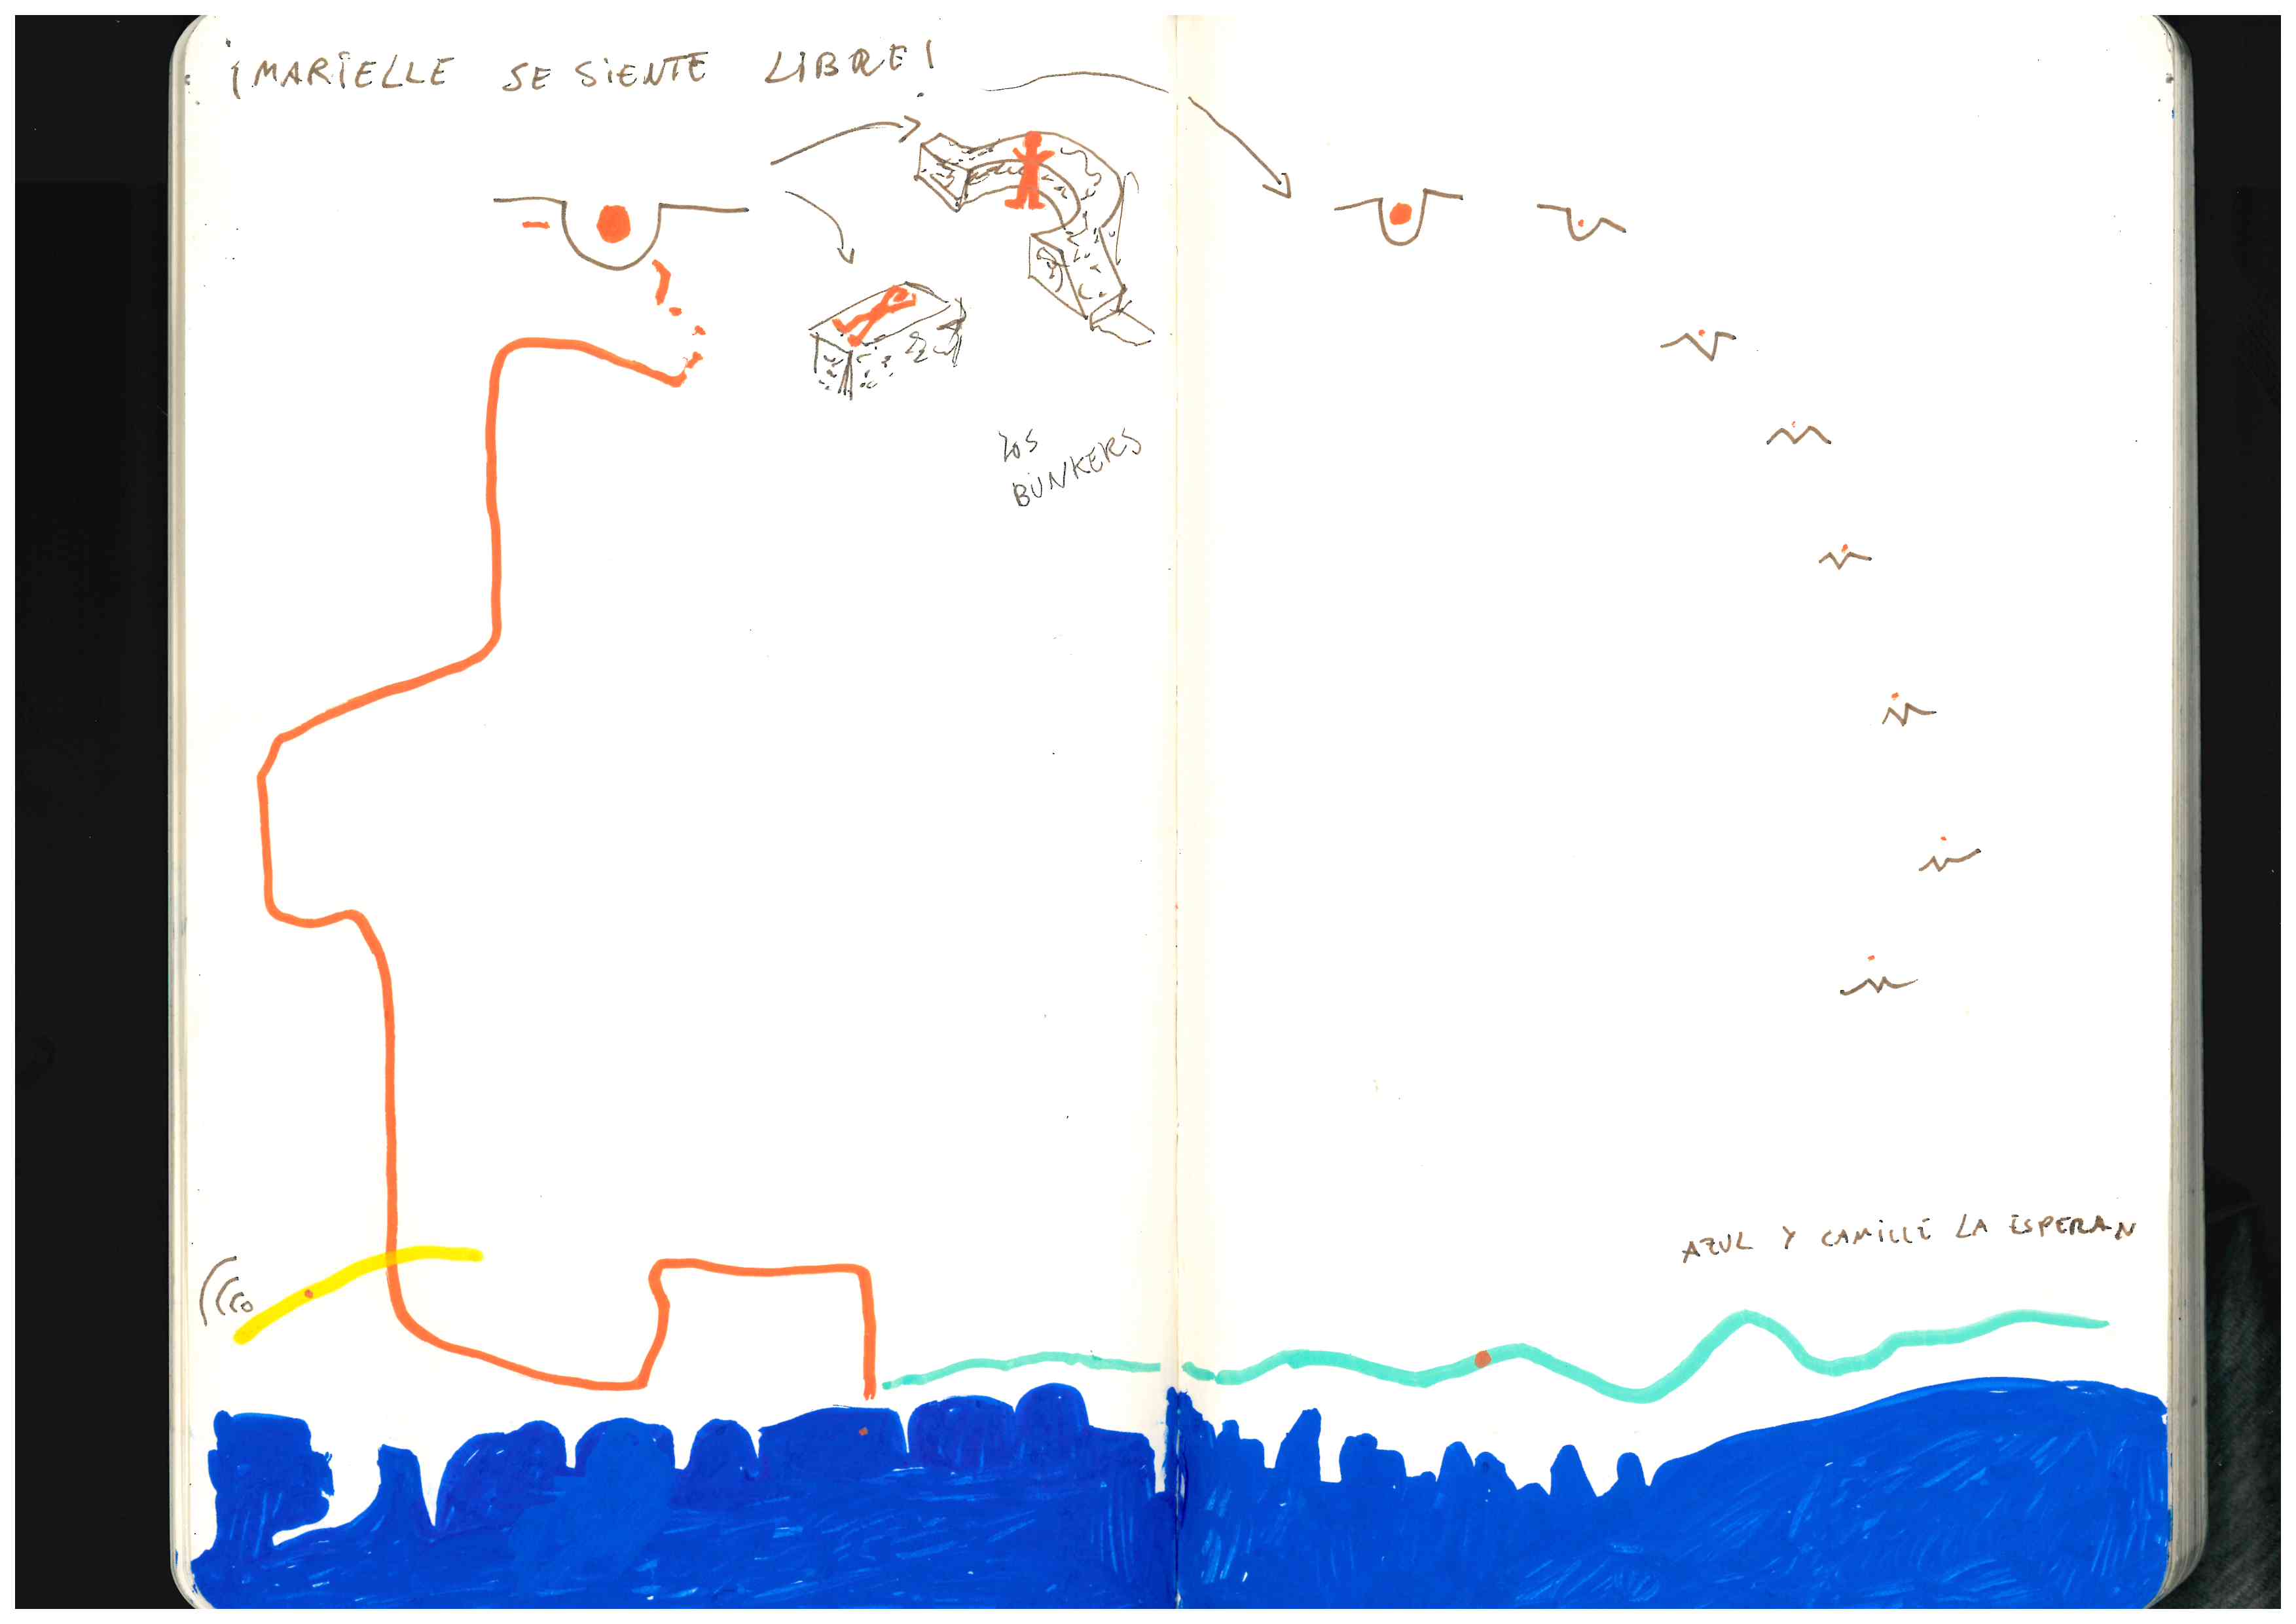 ¡MARIELLE SE SIENTE LIBRE!
LOS
BUNKERS
AZUL Y CAMILLE LA ESPERAN